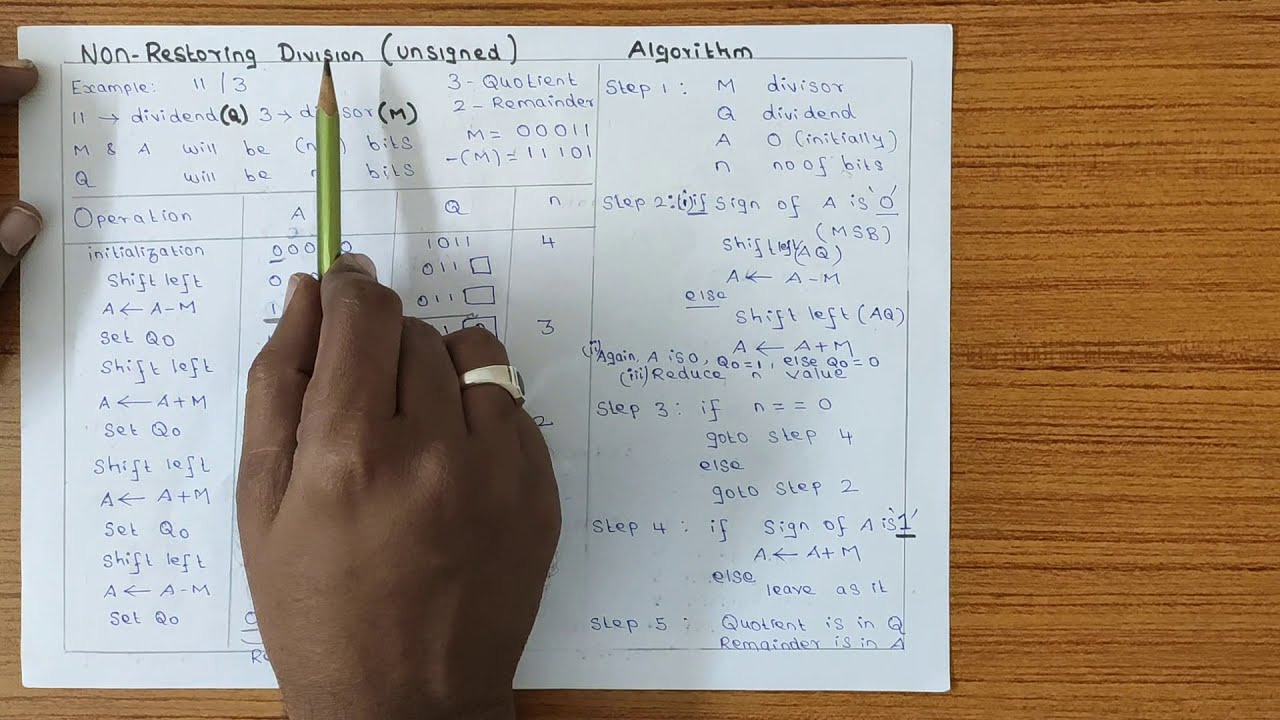 Non-Restoring Division (unsigned)
Example: 11 / 3
3 - Quotient
11 → dividend(Q) 3 → divisor(M)
2 - Remainder
M = 00011
M & A will be bits
-(M) = 11101
Q will be bits
Operation A Q n
initialization 1011 4
Shift left 011
A ← A-M 011
Set Q0 3
Shift left
A ← A+M
Set Q0 2
Shift left
A ← A+M
Set Q0
Shift left
A ← A-M
Set Q0
Algorithm
Step 1 : M divisor
Q dividend
A 0 (initially)
n no of bits
Step 2:(i) if Sign of A is '0'
(MSB)
Shift left(AQ)
A ← A-M
else
Shift left (AQ)
A ← A+M
(ii) Again, A is 0, Q0=1, else Q0=0
(iii) Reduce n value
Step 3 : if n == 0
goto step 4
else
goto step 2
Step 4 : if Sign of A is '1'
A ← A+M
else
leave as it
Step 5 : Quotient is in Q
Remainder is in A